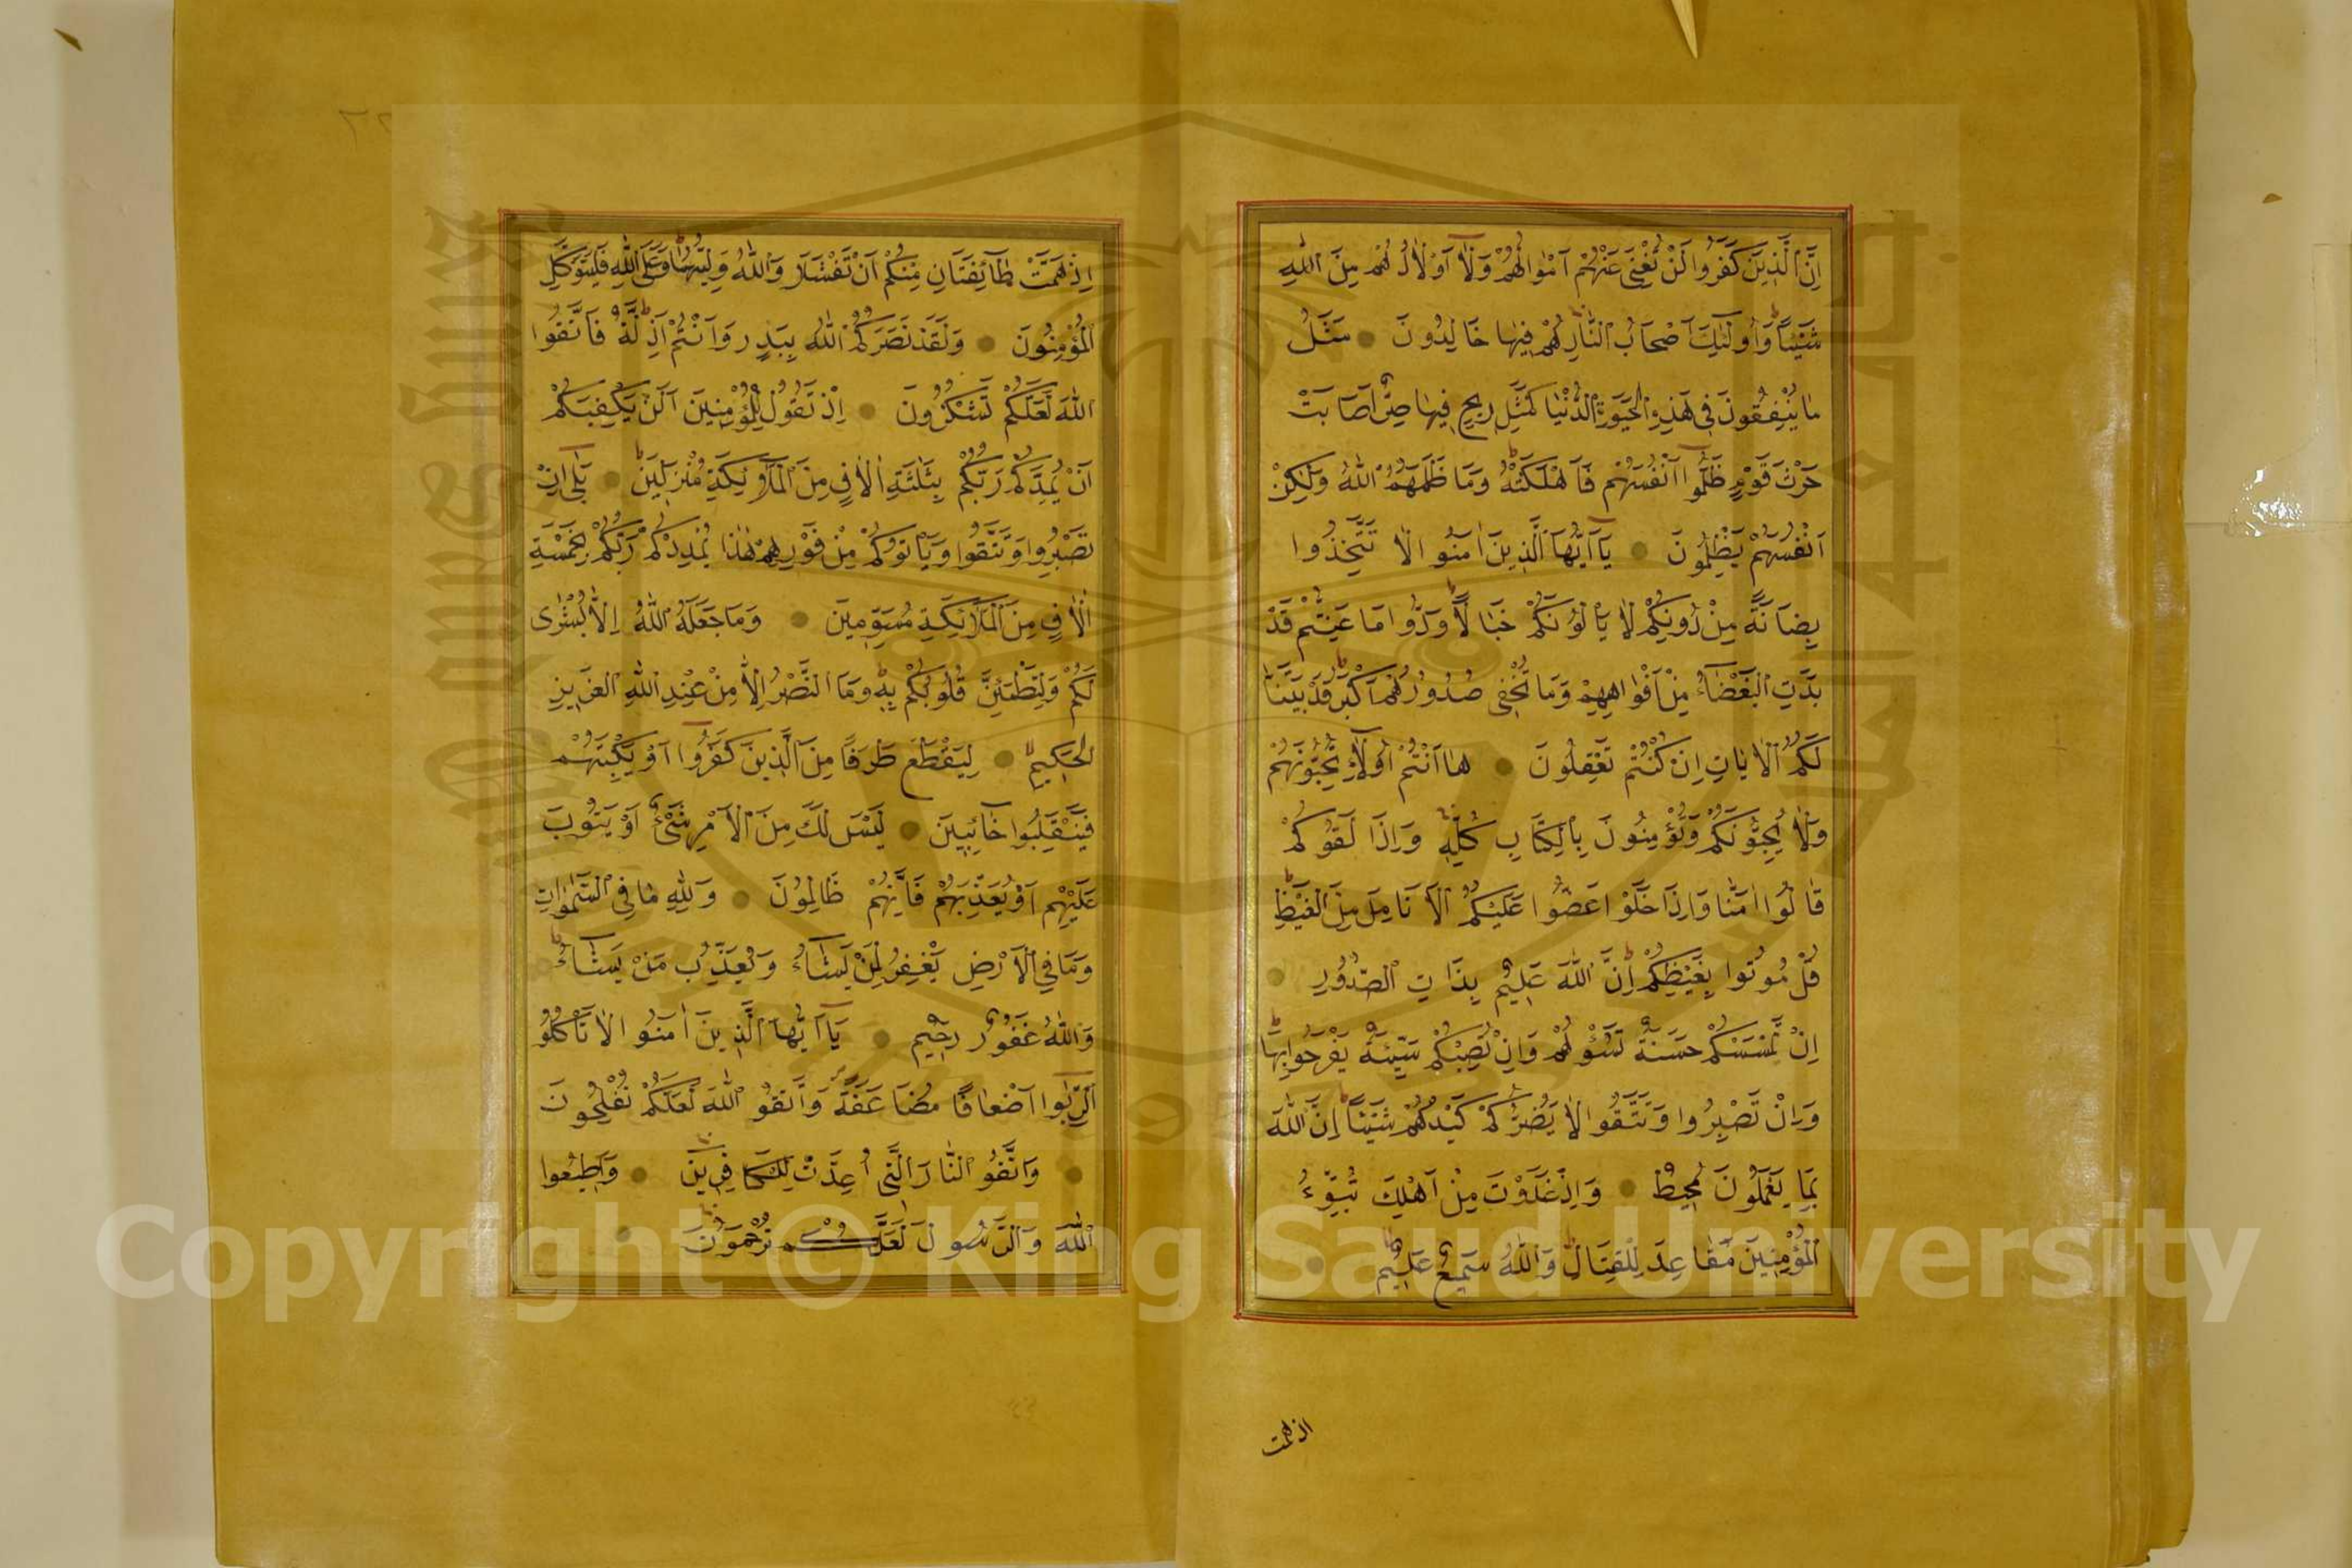 اِنَّ الَّذِينَ كَفَرُوا لَنْ تُغْنِيَ عَنْهُمْ اَمْوَالُهُمْ وَلَا اَوْلَادُهُمْ مِنَ اللّٰهِ
شَيْئًا وَاُولٰئِكَ اَصْحَابُ النَّارِ هُمْ فِيهَا خَالِدُونَ مَثَلُ
مَا يُنْفِقُونَ فِي هٰذِهِ الْحَيٰوةِ الدُّنْيَا كَمَثَلِ رِيحٍ فِيهَا صِرٌّ اَصَابَتْ
حَرْثَ قَوْمٍ ظَلَمُوا اَنْفُسَهُمْ فَاَهْلَكَتْهُ وَمَا ظَلَمَهُمُ اللّٰهُ وَلٰكِنْ
اَنْفُسَهُمْ يَظْلِمُونَ يَا اَيُّهَا الَّذِينَ اٰمَنُوا لَا تَتَّخِذُوا
بِطَانَةً مِنْ دُونِكُمْ لَا يَاْلُونَكُمْ خَبَالًا وَدُّوا مَا عَنِتُّمْ قَدْ
بَدَتِ الْبَغْضَاءُ مِنْ اَفْوَاهِهِمْ وَمَا تُخْفِي صُدُورُهُمْ اَكْبَرُ قَدْ بَيَّنَّا
لَكُمُ الْاٰيَاتِ اِنْ كُنْتُمْ تَعْقِلُونَ هَا اَنْتُمْ اُولَاءِ تُحِبُّونَهُمْ
وَلَا يُحِبُّونَكُمْ وَتُؤْمِنُونَ بِالْكِتَابِ كُلِّهِ وَاِذَا لَقُوكُمْ
قَالُوا اٰمَنَّا وَاِذَا خَلَوْا عَضُّوا عَلَيْكُمُ الْاَنَامِلَ مِنَ الْغَيْظِ
قُلْ مُوتُوا بِغَيْظِكُمْ اِنَّ اللّٰهَ عَلِيمٌ بِذَاتِ الصُّدُورِ
اِنْ تَمْسَسْكُمْ حَسَنَةٌ تَسُؤْهُمْ وَاِنْ تُصِبْكُمْ سَيِّئَةٌ يَفْرَحُوا بِهَا
وَاِنْ تَصْبِرُوا وَتَتَّقُوا لَا يَضُرُّكُمْ كَيْدُهُمْ شَيْئًا اِنَّ اللّٰهَ
بِمَا يَعْمَلُونَ مُحِيطٌ وَاِذْ غَدَوْتَ مِنْ اَهْلِكَ تُبَوِّئُ
الْمُؤْمِنِينَ مَقَاعِدَ لِلْقِتَالِ وَاللّٰهُ سَمِيعٌ عَلِيمٌ
اذ همت
اِذْ هَمَّتْ طَائِفَتَانِ مِنْكُمْ اَنْ تَفْشَلَا وَاللّٰهُ وَلِيُّهُمَا وَعَلَى اللّٰهِ فَلْيَتَوَكَّلِ
الْمُؤْمِنُونَ وَلَقَدْ نَصَرَكُمُ اللّٰهُ بِبَدْرٍ وَاَنْتُمْ اَذِلَّةٌ فَاتَّقُوا
اللّٰهَ لَعَلَّكُمْ تَشْكُرُونَ اِذْ تَقُولُ لِلْمُؤْمِنِينَ اَلَنْ يَكْفِيَكُمْ
اَنْ يُمِدَّكُمْ رَبُّكُمْ بِثَلٰثَةِ اٰلَافٍ مِنَ الْمَلٰئِكَةِ مُنْزَلِينَ بَلٰى اِنْ
تَصْبِرُوا وَتَتَّقُوا وَيَاْتُوكُمْ مِنْ فَوْرِهِمْ هٰذَا يُمْدِدْكُمْ رَبُّكُمْ بِخَمْسَةِ
اٰلَافٍ مِنَ الْمَلٰئِكَةِ مُسَوِّمِينَ وَمَا جَعَلَهُ اللّٰهُ اِلَّا بُشْرٰى
لَكُمْ وَلِتَطْمَئِنَّ قُلُوبُكُمْ بِهِ وَمَا النَّصْرُ اِلَّا مِنْ عِنْدِ اللّٰهِ الْعَزِيزِ
الْحَكِيمِ لِيَقْطَعَ طَرَفًا مِنَ الَّذِينَ كَفَرُوا اَوْ يَكْبِتَهُمْ
فَيَنْقَلِبُوا خَائِبِينَ لَيْسَ لَكَ مِنَ الْاَمْرِ شَيْءٌ اَوْ يَتُوبَ
عَلَيْهِمْ اَوْ يُعَذِّبَهُمْ فَاِنَّهُمْ ظَالِمُونَ وَلِلّٰهِ مَا فِي السَّمٰوَاتِ
وَمَا فِي الْاَرْضِ يَغْفِرُ لِمَنْ يَشَاءُ وَيُعَذِّبُ مَنْ يَشَاءُ
وَاللّٰهُ غَفُورٌ رَحِيمٌ يَا اَيُّهَا الَّذِينَ اٰمَنُوا لَا تَاْكُلُوا
الرِّبٰوا اَضْعَافًا مُضَاعَفَةً وَاتَّقُوا اللّٰهَ لَعَلَّكُمْ تُفْلِحُونَ
وَاتَّقُوا النَّارَ الَّتِي اُعِدَّتْ لِلْكَافِرِينَ وَاَطِيعُوا
اللّٰهَ وَالرَّسُولَ لَعَلَّكُمْ تُرْحَمُونَ
Copyright © King Saud University